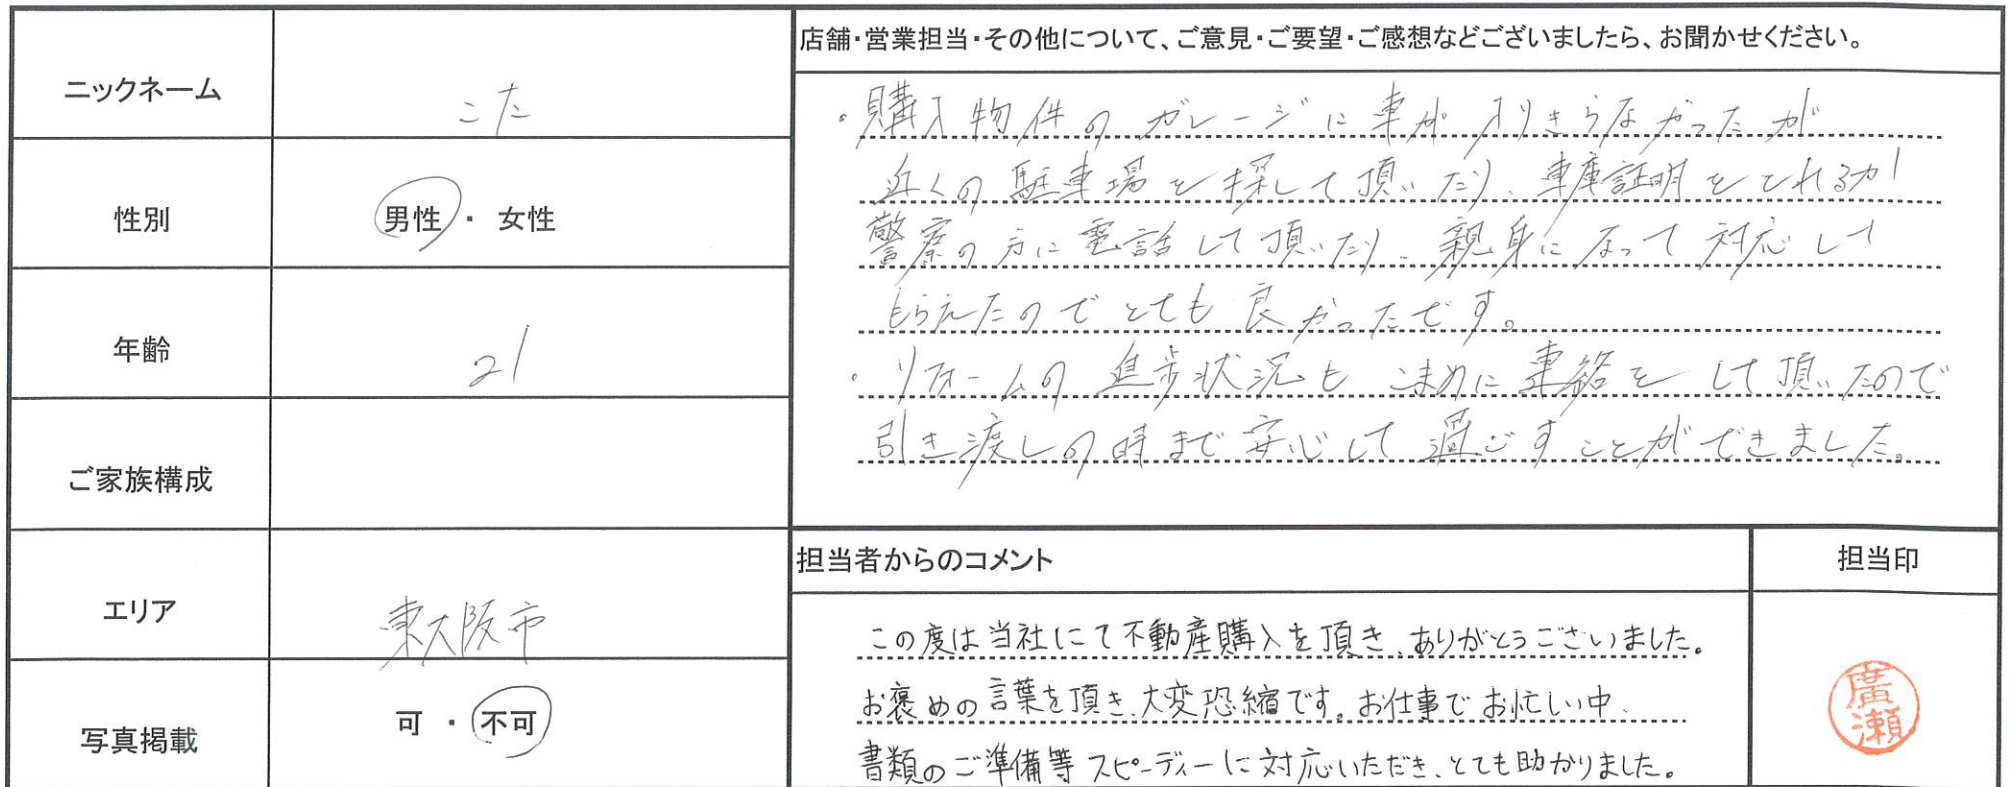 ニックネーム
こた
性別
男性・女性
年齢
21
ご家族構成
エリア
東大阪市
写真掲載
可・不可
店舗・営業担当・その他について、ご意見・ご要望・ご感想などございましたら、お聞かせください。
・購入物件のガレージに車が入りきらなかったが
近くの駐車場を探して頂いたり、車庫証明をとれるか
警察の方に電話して頂いたり、親身になって対応して
もらえたのでとても良かったです。
・リフォームの進歩状況もこまめに連絡をして頂いたので
引き渡しの時まで安心して過ごすことができました。
担当者からのコメント
この度は当社にて不動産購入を頂き、ありがとうございました。
お褒めの言葉を頂き、大変恐縮です。お仕事でお忙しい中、
書類のご準備等スピーディーに対応いただき、とても助かりました。
担当印
廣瀬